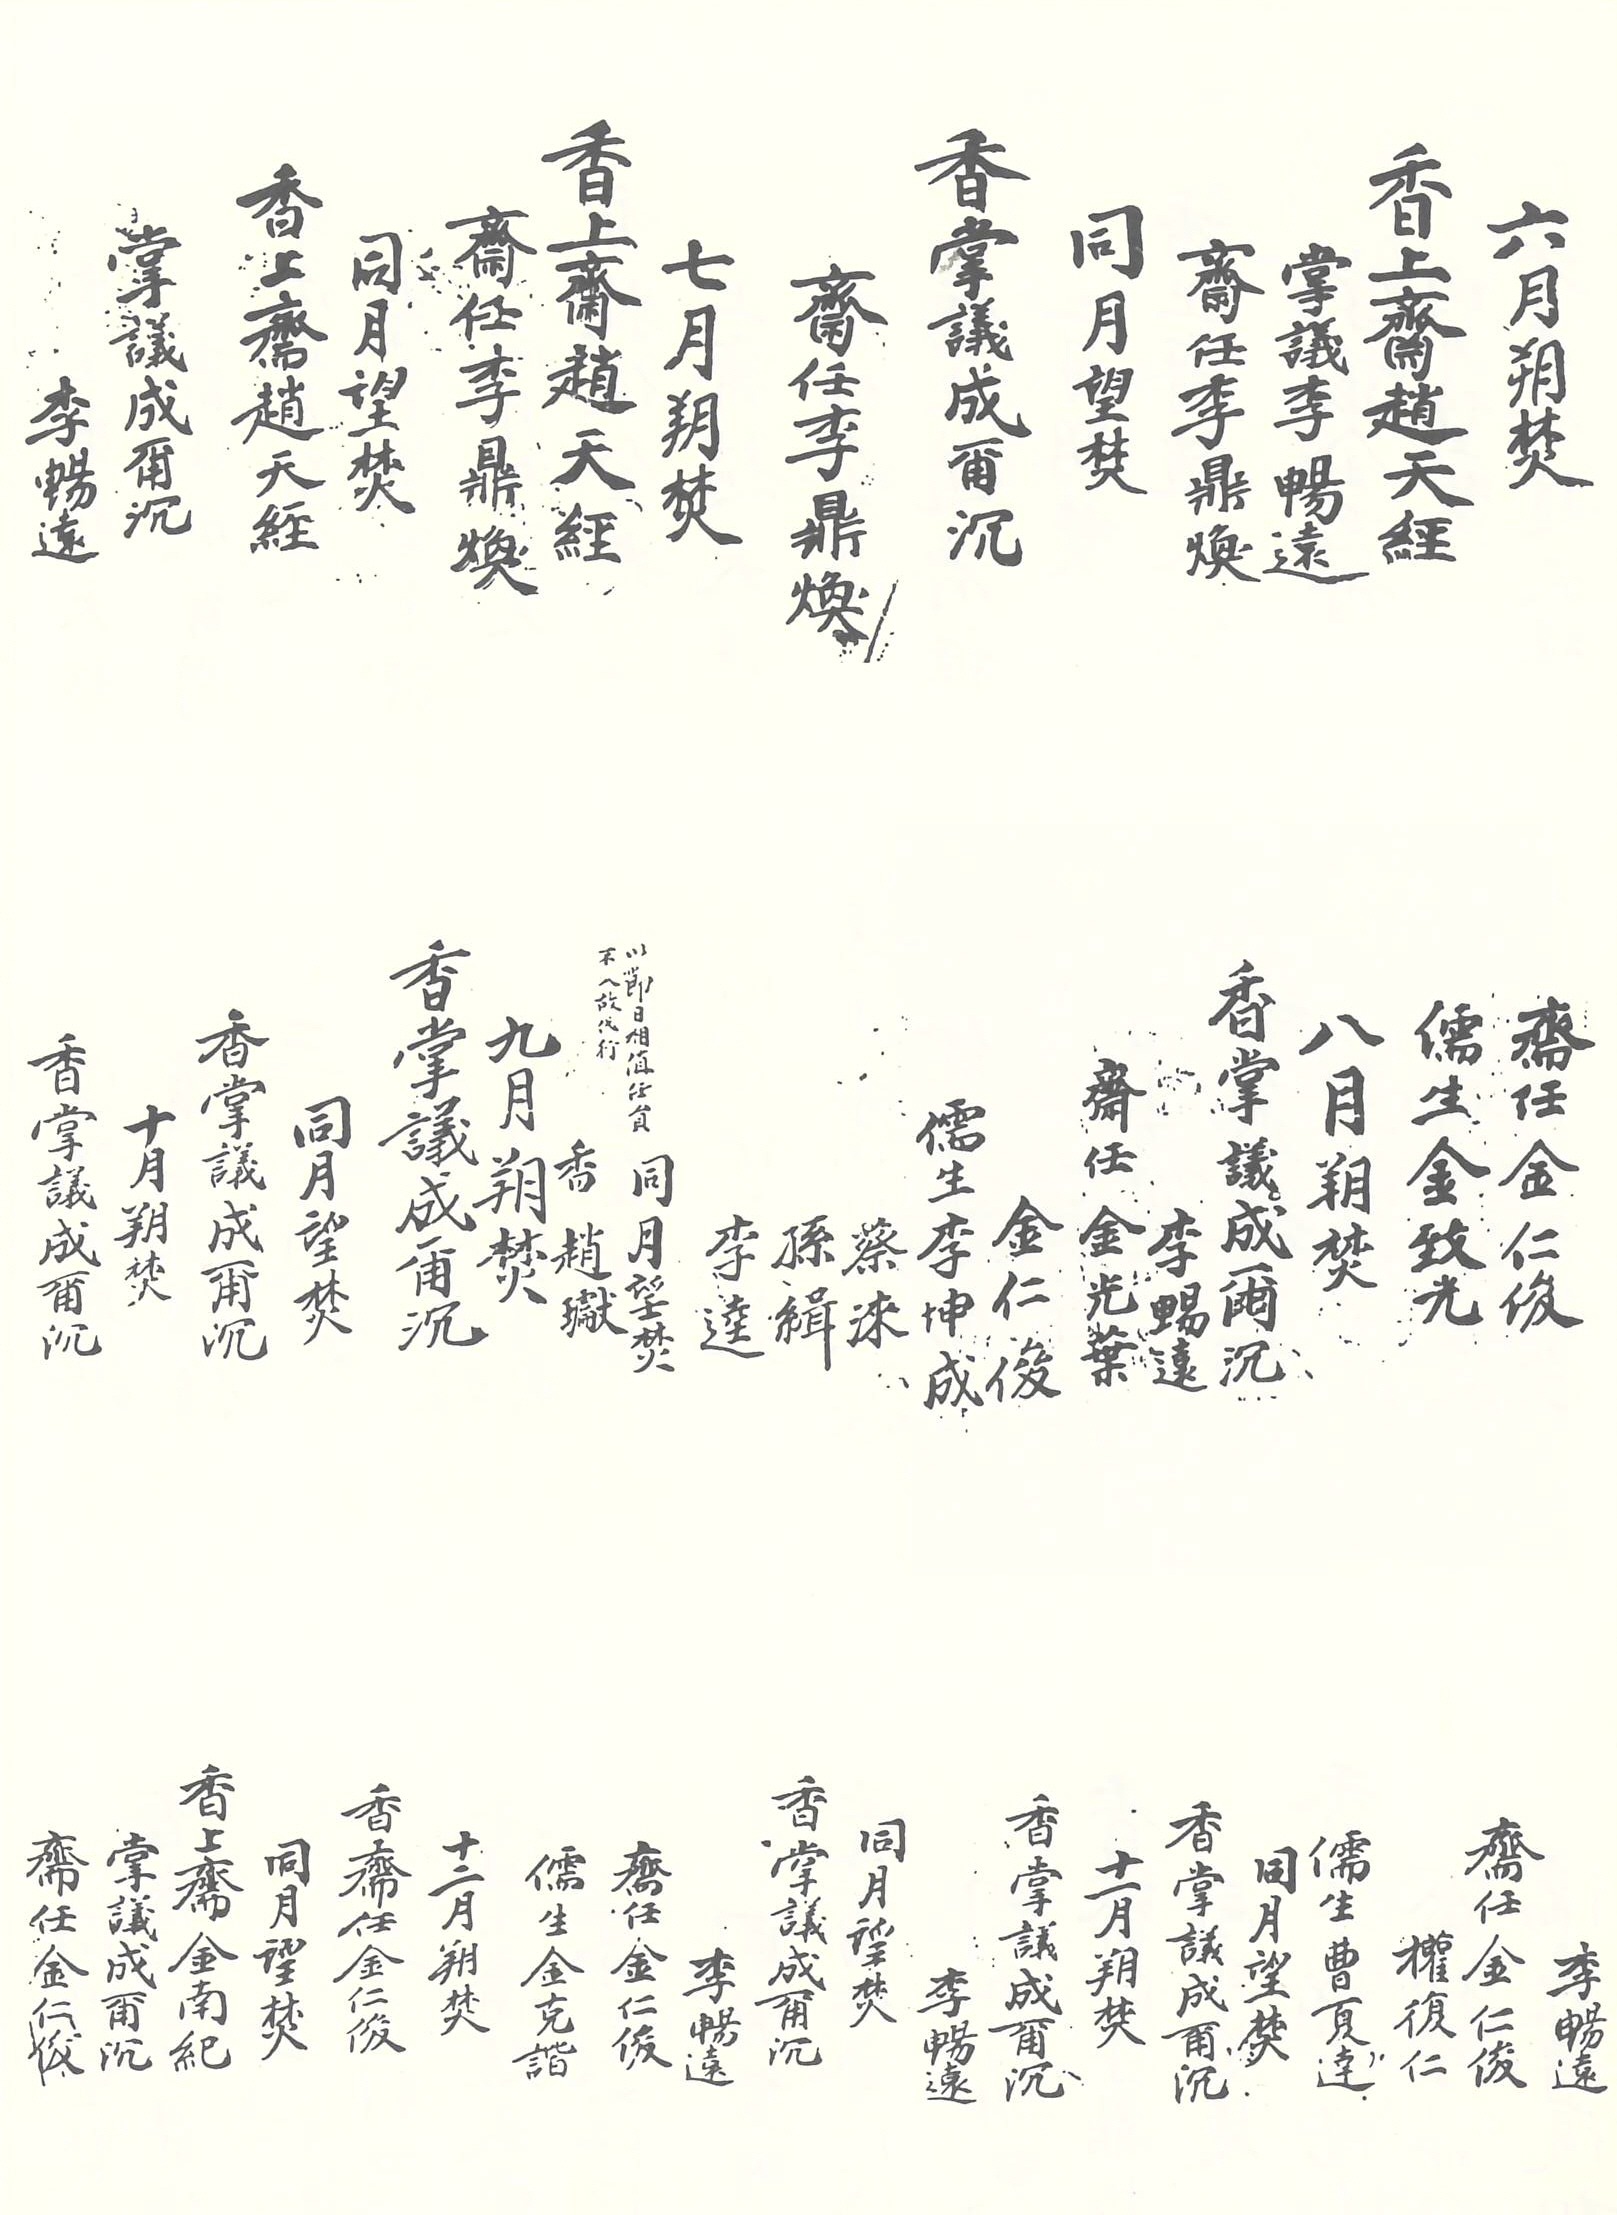 六月朔焚
香上齋趙天經
掌議李暢遠
齋任李鼎煥
同月望焚
香掌議成爾沉
齋任李鼎煥
七月朔焚
香上齋趙天經
齋任李鼎煥
同月望焚
香上齋趙天經
掌議成爾沉
李暢遠
齋任金仁俊
儒生金致光
八月朔焚
香掌議成爾沉
李暢遠
齋任金光葉
金仁俊
儒生李坤成
蔡淶
孫緝
李逵
同月望焚
以節日相值任員
不入故代行
香趙瓛
九月朔焚
香掌議成爾沉
同月望焚
香掌議成爾沉
十月朔焚
香掌議成爾沉
李暢遠
齋任金仁俊
權復仁
儒生曹夏達
同月望焚
香掌議成爾沉
十一月朔焚
香掌議成爾沉
李暢遠
同月望焚
香掌議成爾沉
李暢遠
齋任金仁俊
儒生金克諧
十二月朔焚
香齋任金仁俊
同月望焚
香上齋金南紀
掌議成爾沉
齋任金仁俊